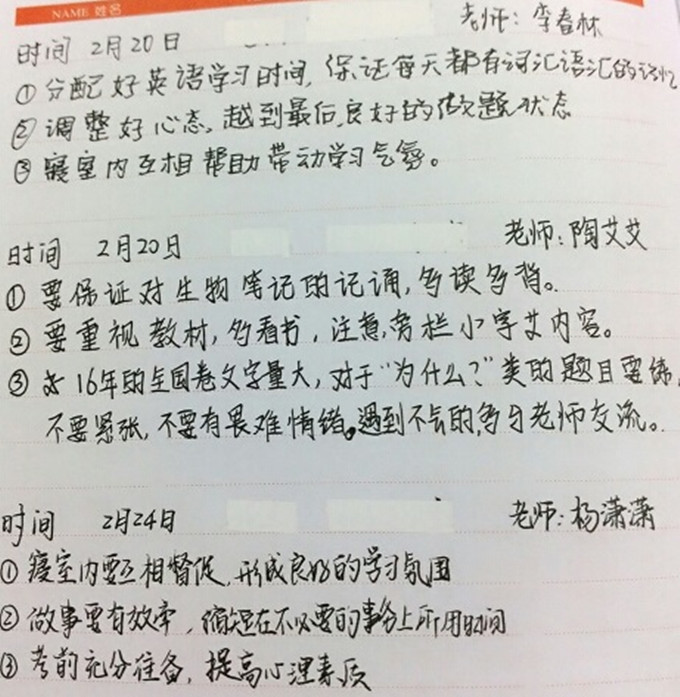 NAME 姓名
时间 2月20日 老师：李春林
①分配好英语学习时间，保证每天都有词汇语汇的记忆
②调整好心态，越到最后，良好的做题状态
③寝室内互相帮助带动学习气氛。
时间 2月20日 老师：陶艾艾
①要保证对生物笔记的记诵，多读多背。
②要重视教材，多看书，注意旁栏小字等内容。
③ 16年的全国卷文字量大，对于“为什么？”类的题目要练，
不要紧张，不要有畏难情绪。遇到不会的，多与老师交流。
时间 2月24日 老师：杨潇潇
①寝室内要互相督促，形成良好的学习氛围
②做事要有效率，缩短在不必要的事务上所用时间
③考前充分准备，提高心理素质